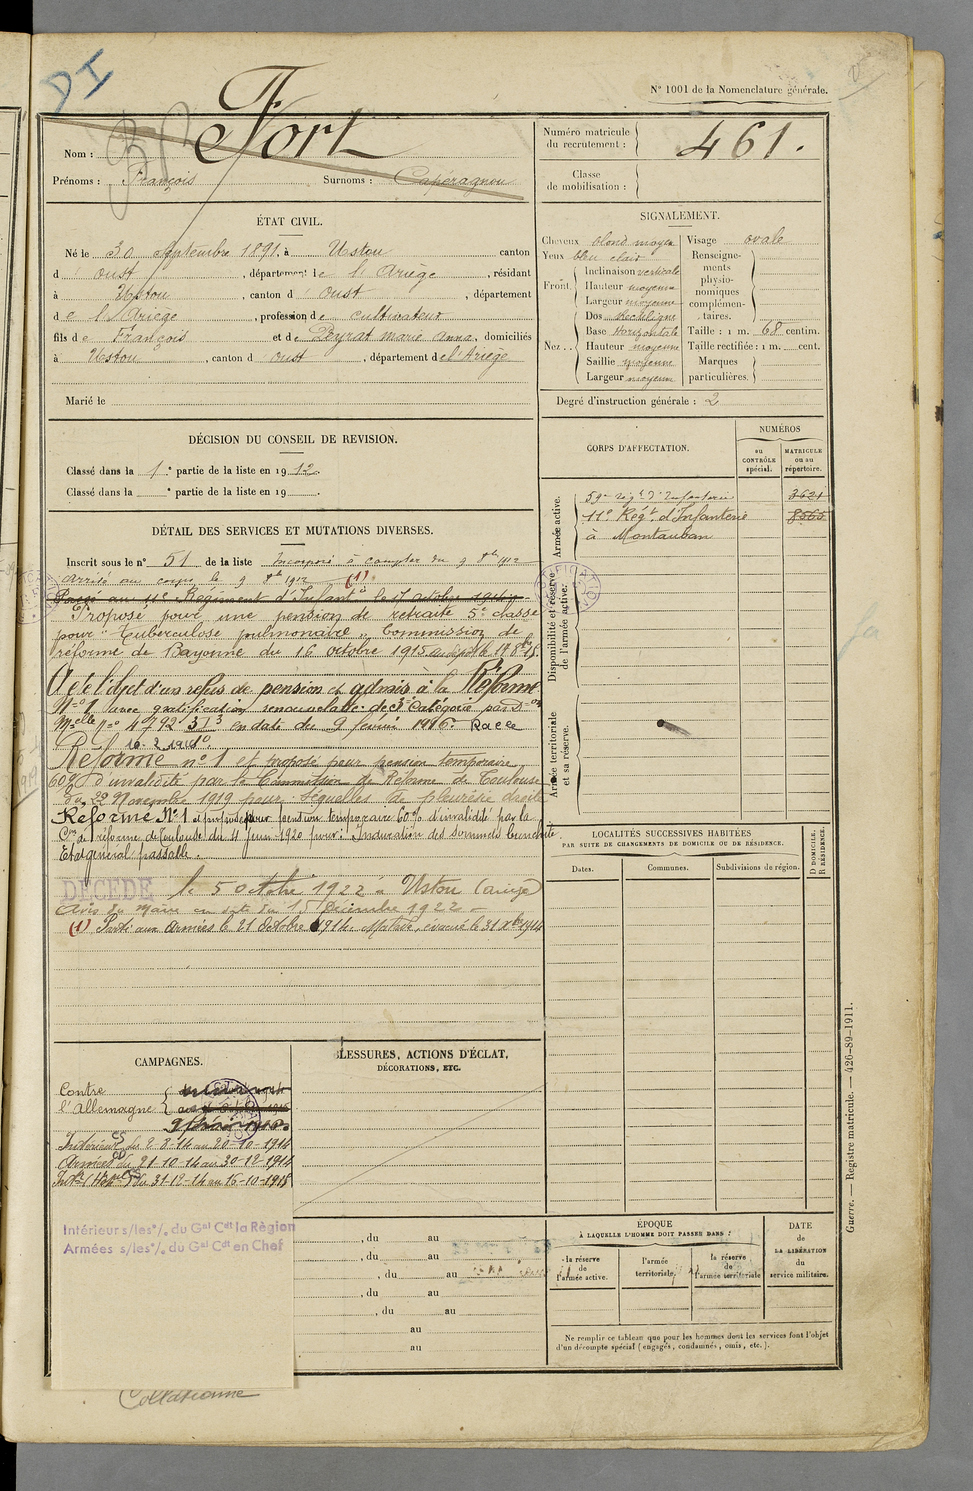 DI
N° 1001 de la Nomenclature générale.
Nom : Fort
Prénoms : François Surnoms : Capéragnou
Numéro matricule du recrutement : 461.
Classe de mobilisation :
ÉTAT CIVIL.
Né le 30 Septembre 1891, à Ustou canton
d'Oust, département de l'Ariège, résidant
à Ustou, canton d'Oust, département
de l'Ariège, profession de cultivateur
fils de François et de Peyrat Marie Anna, domiciliés
à Ustou, canton d'Oust, département de l'Ariège
Marié le
SIGNALEMENT.
Cheveux blond moyen
Yeux bleu clair
Front. Inclinaison verticale
Hauteur moyenne
Largeur moyenne
Nez. Dos Rectiligne
Base Horizontale
Hauteur moyenne
Saillie moyenne
Largeur moyenne
Visage ovale
Renseignements physionomiques complémentaires.
Taille : 1 m. 68 centim.
Taille rectifiée : 1 m. cent.
Marques particulières.
Degré d'instruction générale : 2
DÉCISION DU CONSEIL DE REVISION.
Classé dans la 1e partie de la liste en 1912.
Classé dans la e partie de la liste en 19 .
CORPS D'AFFECTATION.
NUMÉROS
au CONTRÔLE spécial.
MATRICULE ou au répertoire.
Armée active.
59e Régt d'Infanterie 3621
11e Régt d'Infanterie 8565
à Montauban
Disponibilité et réserve de l'armée active.
Armée territoriale et sa réserve.
DÉTAIL DES SERVICES ET MUTATIONS DIVERSES.
Inscrit sous le n° 51 de la liste Incorporé à compter du 9 8bre 1912
Arrivé au corps le 9 8bre 1912 (1)
Passé au 11e Régiment d'Infantie le 17 octobre 1914
Proposé pour une pension de retraite 5e classe
pour "Tuberculose pulmonaire" Commission de
réforme de Bayonne du 16 octobre 1915
A été l'objet d'un refus de pension et admis à la Réforme
N° 1 avec gratification renouvelable de 3e Catégorie par Don
Mlle N° 4792 3I3 en date du 9 février 1916.
16-2-1916.
Réforme n° 1 et proposé pour pension temporaire
60% d'invalidité par la Commission de Réforme de Toulouse
du 22 Novembre 1919 pour : Séquelles de pleurésie droite
Réforme N° 1 et proposé pour pension temporaire 60% d'invalidité par la
Con de réforme de Toulouse du 4 Juin 1920 pour : Induration des sommets
Etat général passable.
DÉCÉDÉ le 5 octobre 1922 à Ustou (Ariège)
Avis du Maire en date du 15 Décembre 1922
(1) Parti aux Armées le 21 Octobre 1914. Malade, évacué le 31 Xbre 1914
LOCALITÉS SUCCESSIVES HABITÉES
PAR SUITE DE CHANGEMENTS DE DOMICILE OU DE RÉSIDENCE.
Dates.
Communes.
Subdivisions de région.
D. DOMICILE. R. RÉSIDENCE.
CAMPAGNES.
Contre
l'Allemagne
Intérieur CS du 2-8-14 au 20-10-1914
Armées CD du 21-10-14 au 30-12-1914
du 31-12-14 au 16-10-1915
Intérieur s/les o/. du Gal Cdt la Région
Armées s/les o/. du Gal Cdt en Chef
BLESSURES, ACTIONS D'ÉCLAT,
DÉCORATIONS, ETC.
, du au
, du au
, du au
, du au
, du au
au
au
ÉPOQUE
À LAQUELLE L'HOMME DOIT PASSER DANS :
la réserve de l'armée active.
l'armée territoriale.
la réserve de l'armée territoriale
DATE DE LA LIBÉRATION du service militaire.
Ne remplir ce tableau que pour les hommes dont les services font l'objet
d'un décompte spécial (engagés, condamnés, omis, etc.).
Guerre. — Registre matricule. — 426-89-1911.
Collationné